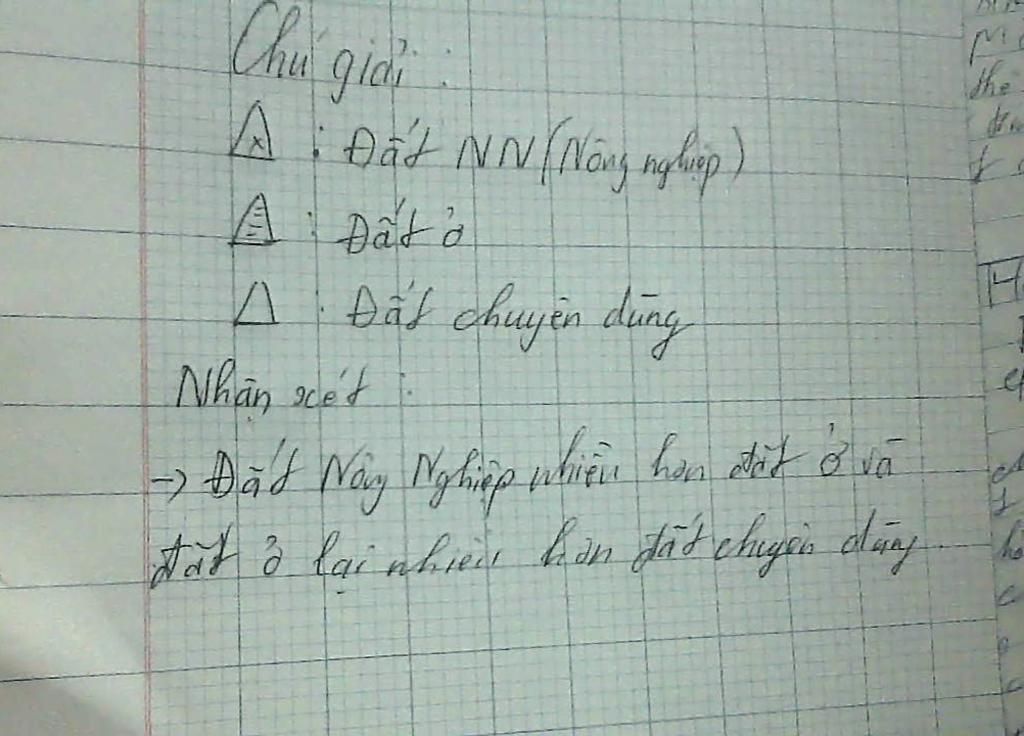 Chú giải :
: Đất NN (Nông nghiệp)
: Đất ở
: Đất chuyên dùng
Nhận xét :
-> Đất Nông Nghiệp nhiều hơn đất ở và
đất ở lại nhiều hơn đất chuyên dùng.
the